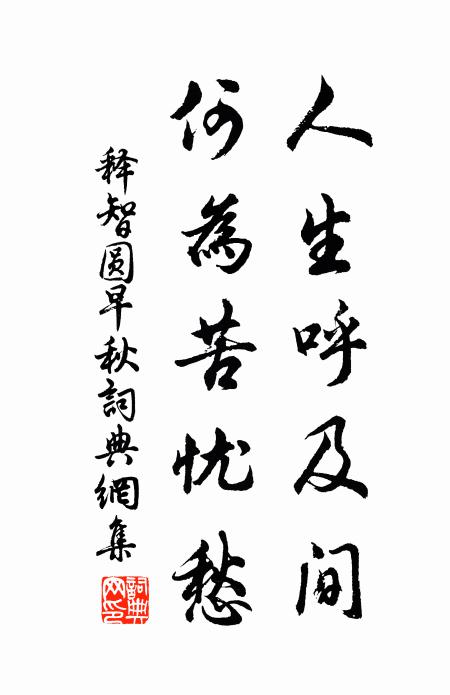 人生呼及间
何為苦忧愁
释智圆早秋詞典網集
詞典网印